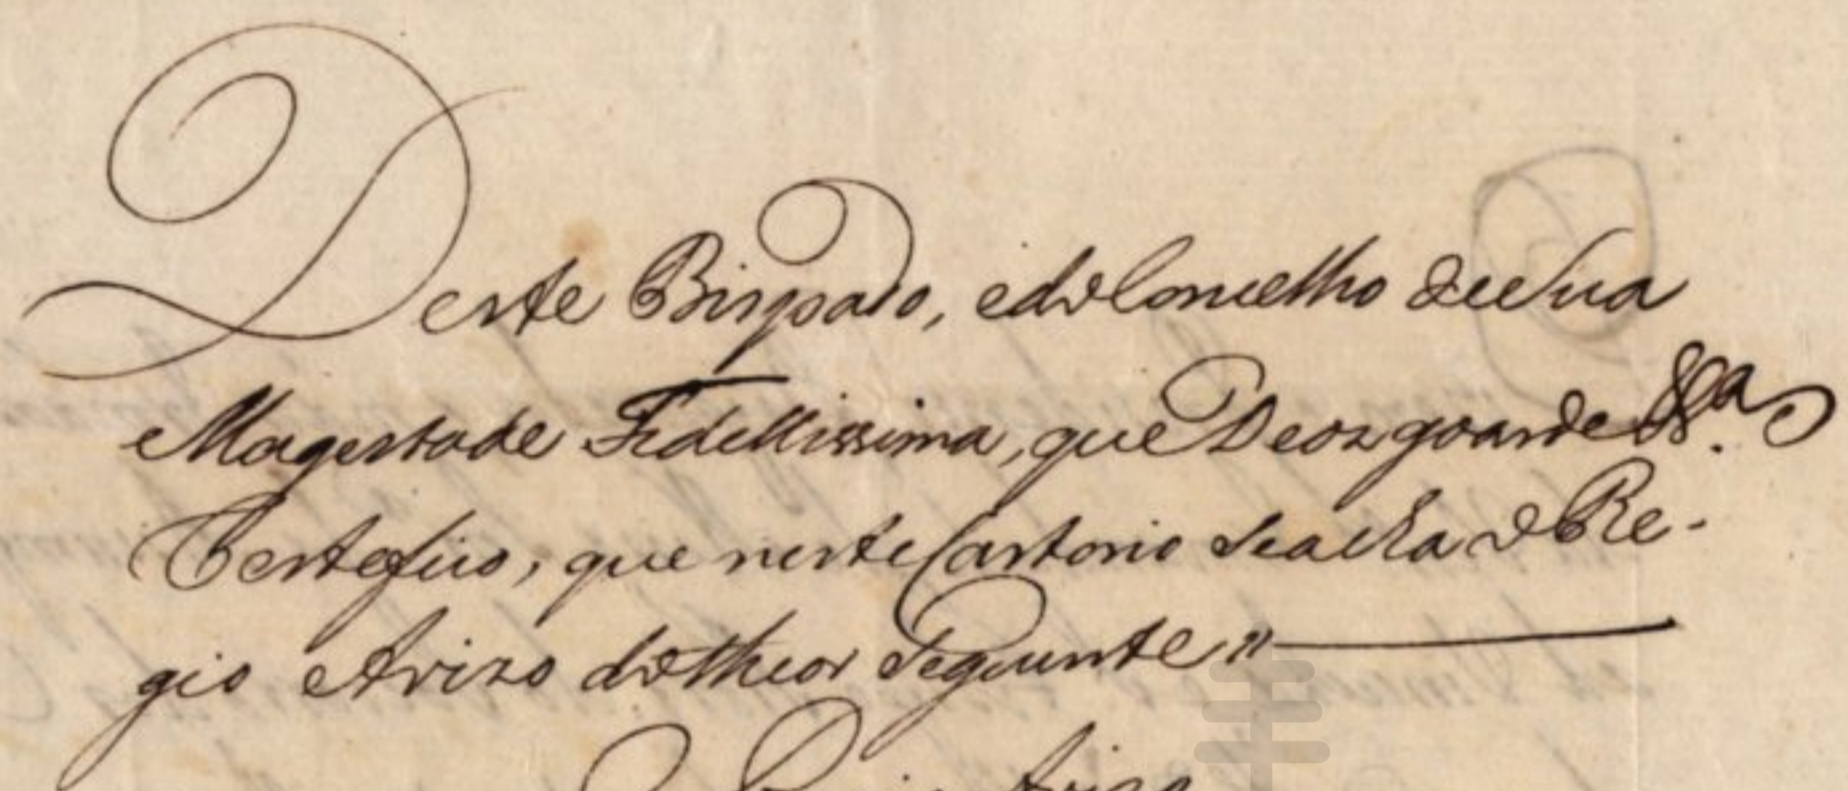 Deste Bispado, e do Concelho de Sua
Magestade Fidellissima, que Deoz goarde &.ª
Certefico, que neste Cartorio se acha o Re-
gio Avizo do theor seguinte"
Regio Avizo